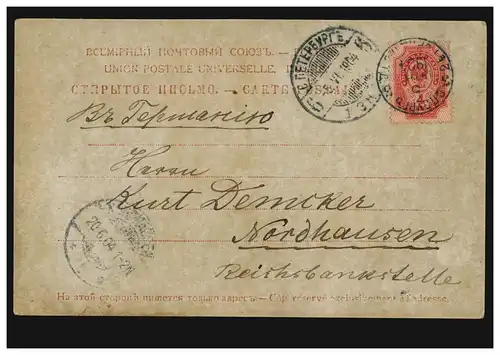 ВСЕМІРНЫЙ ПОЧТОВЫЙ СОЮЗЪ.
UNION POSTALE UNIVERSELLE.
ОТКРЫТОЕ ПИСЬМО.
Въ Германію
Herrn
Kurt Demcker
Nordhausen
Reichsbankstelle
С. ПЕТЕРБУРГЪ
1904
20.6.04. 1-2N
На этой сторонѣ пишется только адресъ. — Côté réservé exclusivement à l'adresse.